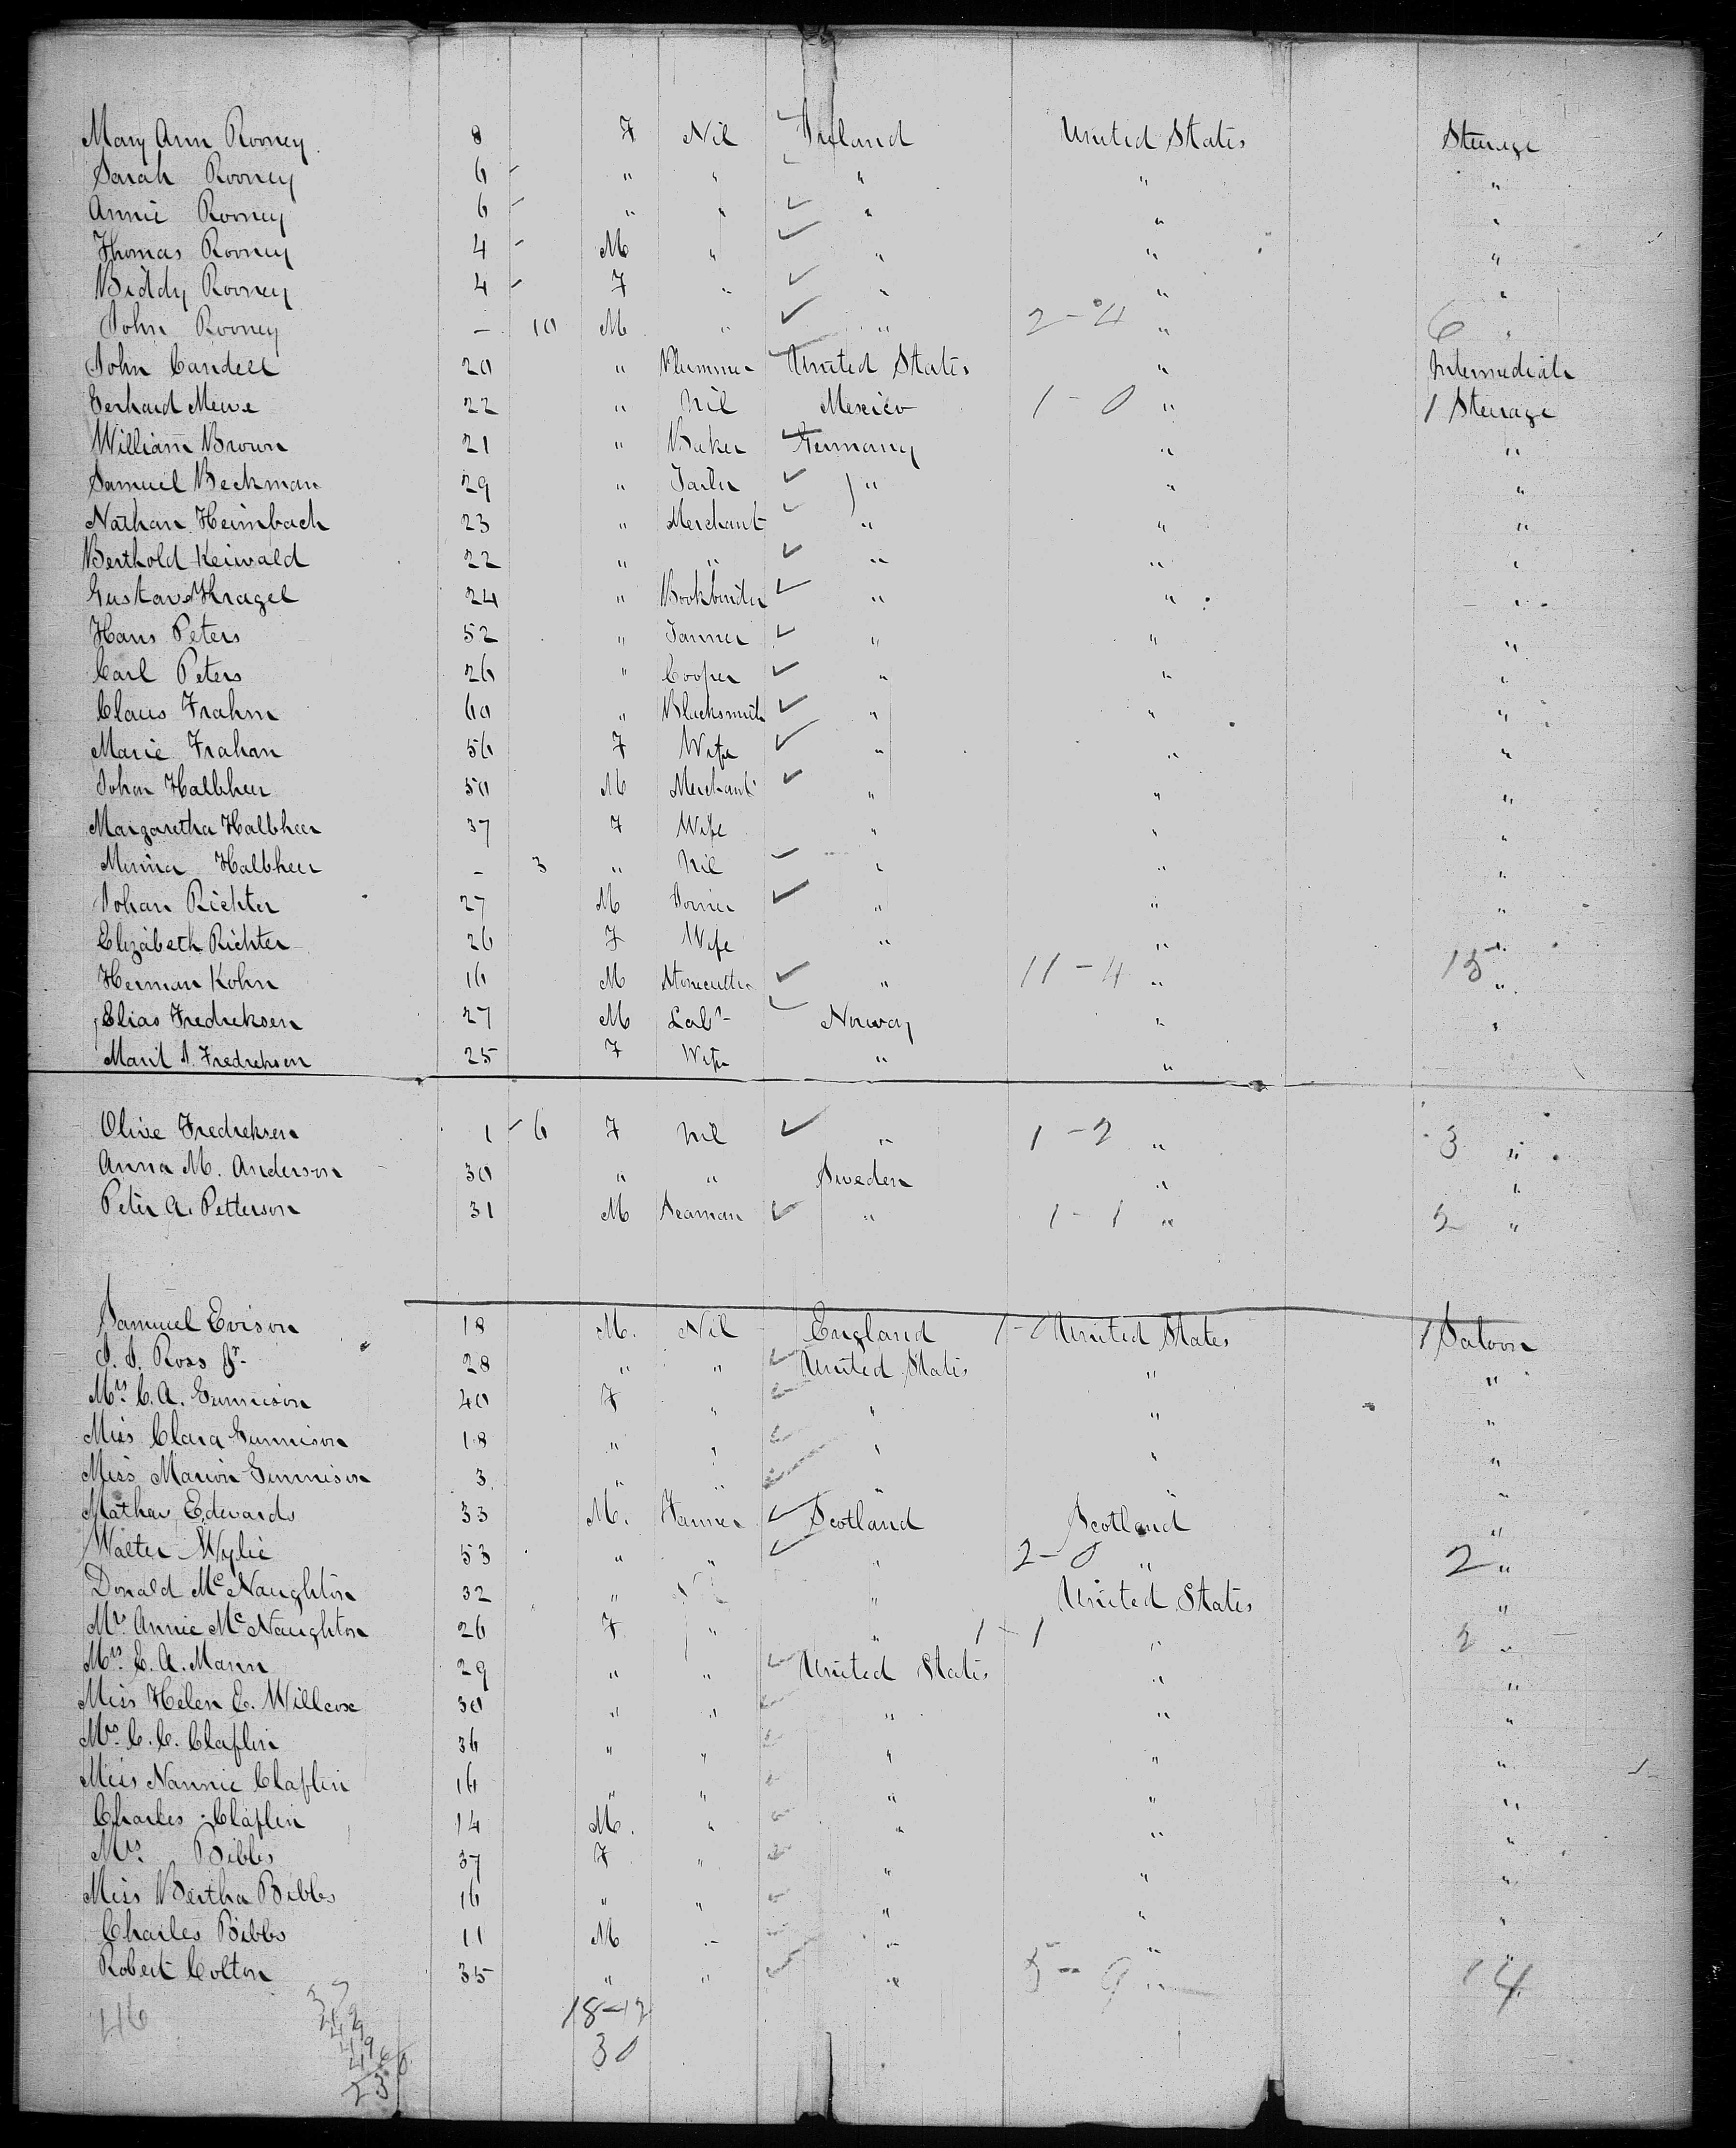 Mary Ann Rooney 8 F Nil Ireland United States Steerage
Sarah Rooney 6 " " " " "
Annie Rooney 6 " " " " "
Thomas Rooney 4 M " " " "
Biddy Rooney 4 F " " " "
John Rooney - 10 M " " 2-4 " 6 "
John Candell 20 " Plummer United States " Intermediate
Gerhard Mewe 22 " Nil Mexico 1-0 " 1 Steerage
William Brown 21 " Baker Germany " "
Samuel Beckman 29 " Tailor " " "
Nathan Heimbach 23 " Merchant " " "
Berthold Keiwald 22 " " " " "
Gustav Kragel 24 " Bookbinder " " "
Hans Peters 52 " " " "
Carl Peters 26 " Cooper " " "
Claus Frahm 60 " Blacksmith " " "
Marie Frahm 56 F Wife " " "
Johan Halbheer 50 M Merchant " " "
Margaretha Halbheer 37 F Wife " " "
Minna Halbheer - 3 " Nil " " "
Johan Richter 27 M Joiner " " "
Elizabeth Richter 26 F Wife " " "
Herman Kohn 16 M Stonecutter " 11-4 " 15 "
Elias Fredriksen 27 M Labr Norway " "
Marit A. Fredriksen 25 F Wife " "
Olive Fredriksen 1 6 F Nil " 1-2 " 3 "
Anna M. Anderson 30 " " Sweden " "
Peter A. Petterson 31 M Seaman " 1-1 " 2 "
Samuel Evison 18 M. Nil England 1-0 United States 1 Saloon
J. J. Ross Jr. 28 " " United States " "
Mrs. C. A. Gunnison 40 F " " " "
Miss Clara Gunnison 18 " " " " "
Miss Marion Gunnison 3 " " " " "
Mathew Edwards 33 M. Farmer Scotland Scotland "
Walter Wylie 53 " " " 2-0 " 2 "
Donald McNaughton 32 " Nil " United States "
Mrs Annie McNaughton 26 F " " 1-1 " 2 "
Mrs. E. A. Mann 29 " " United States " "
Miss Helen E. Willcox 30 " " " " "
Mrs. C. C. Claflin 36 " " " " "
Miss Nannie Claflin 16 " " " " "
Charles Claflin 14 M. " " " "
Mrs. Bibbs 37 F. " " " "
Miss Bertha Bibbs 16 " " " " "
Charles Bibbs 11 M " " " "
Robert Colton 35 " " " 5-9 " 14
46 18-12
30
230